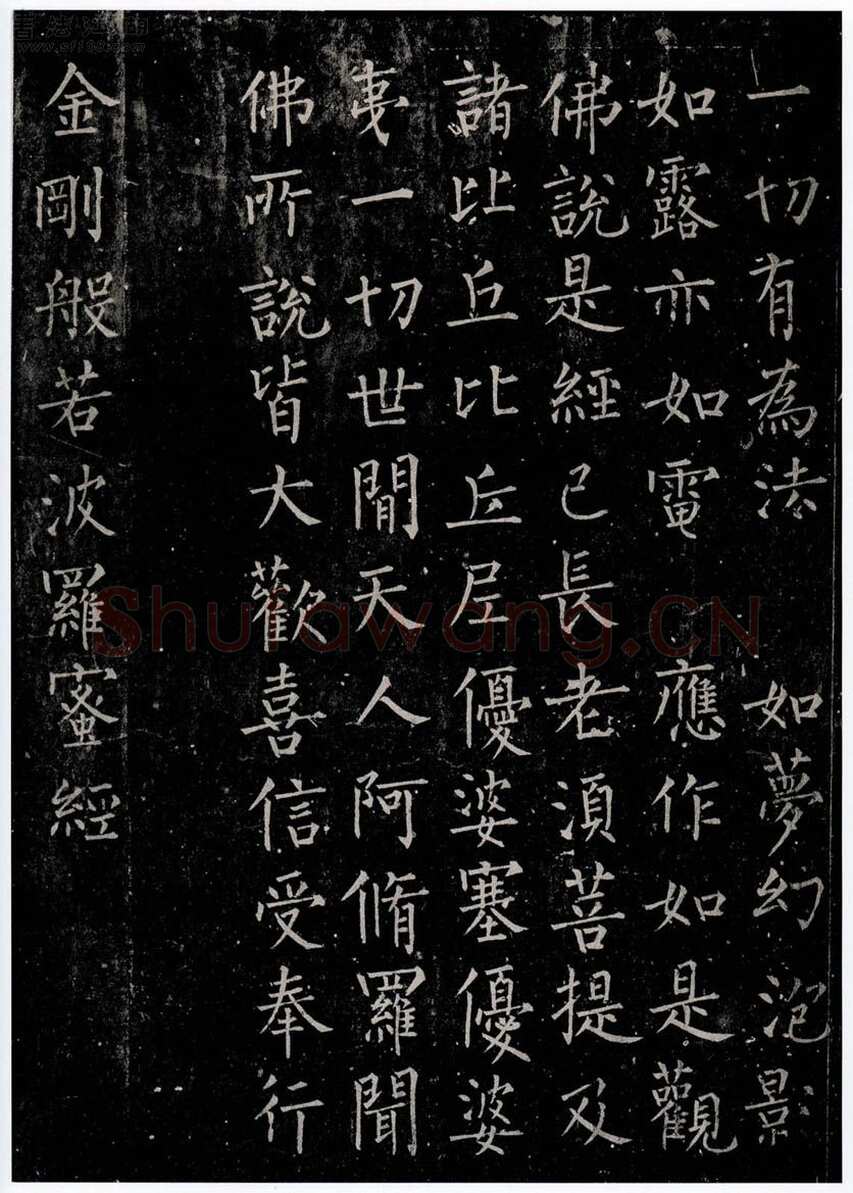 一切有為法 如夢幻泡影
如露亦如電 應作如是觀
佛說是經已長老須菩提及
諸比丘比丘尼優婆塞優婆
夷一切世間天人阿脩羅聞
佛所說皆大歡喜信受奉行
金剛般若波羅蜜經
Shufawang.CN